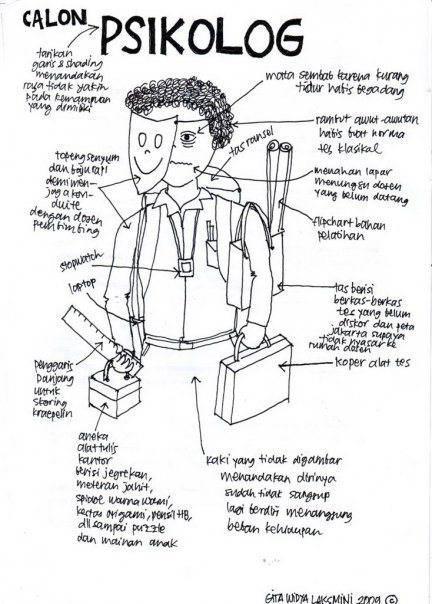 CALON
PSIKOLOG
tarikan
garis & shading
menandakan
rasa tidak yakin
pada kemampuan
yang dimiliki
mata sembab karena kurang
tidur habis begadang
rambut awut-awutan
habis bikin norma
tes klasikal
tas ransel
menahan lapar
menunggu dosen
yang belum datang
topeng senyum
dan baju rapi
demi men-
jaga kon-
duite
dengan dosen
pembimbing
flipchart bahan
pelatihan
stopwatch
laptop
tas berisi
berkas-berkas
tes yang belum
diskor dan peta
jakarta supaya
tidak nyasar ke
rumah dosen
penggaris
panjang
untuk
skoring
kraepelin
koper alat tes
aneka
alat tulis
kantor
berisi jegrekan,
meteran jahit,
spidol warna warni,
kertas origami, pensil HB,
dll sampai puzzle
dan mainan anak
kaki yang tidak digambar
menandakan dirinya
sudah tidak sanggup
lagi berdiri menanggung
beban kehidupan
GITA WIDYA LAKSMINI 2009 ©